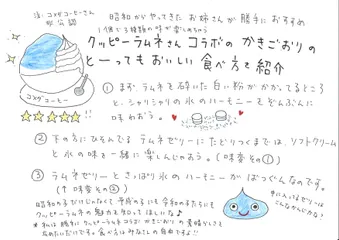 注:コメダコーヒーさん
非公認
昭和からやってきた お姉さんが 勝手に おすすめ
1個で3種類の味が楽しめちゃう
クッピーラムネさん コラボの かきごおりの
とーっても おいしい 食べ方を 紹介
コメダコーヒー
① まず、ラムネを 砕いた 白い粉が かかってるところ
と、シャリシャリの 氷のハーモニーを ぞんぶんに
味わおう。
② 下の方に ひそんでる ラムネゼリーに たどりつくまでは、ソフトクリーム
と 氷の味を 一緒に 楽しんじゃおう。(味変 その①)
③ ラムネゼリーと さっぱり 氷の ハーモニーが ばつぐんなのです。
(↑ 味変 その②)
昭和の子だけじゃなくて 平成の子にも 令和の子たちにも
クッピーラムネの 魅力を 知って ほしいな♪
*私は勝手に クッピーラムネコラボ かきごおりの 素晴らしさを
広めたいだけです。食べ方は みなさんの 自由ですよ!!
中に入ってるゼリーは
こんなかんじかな?